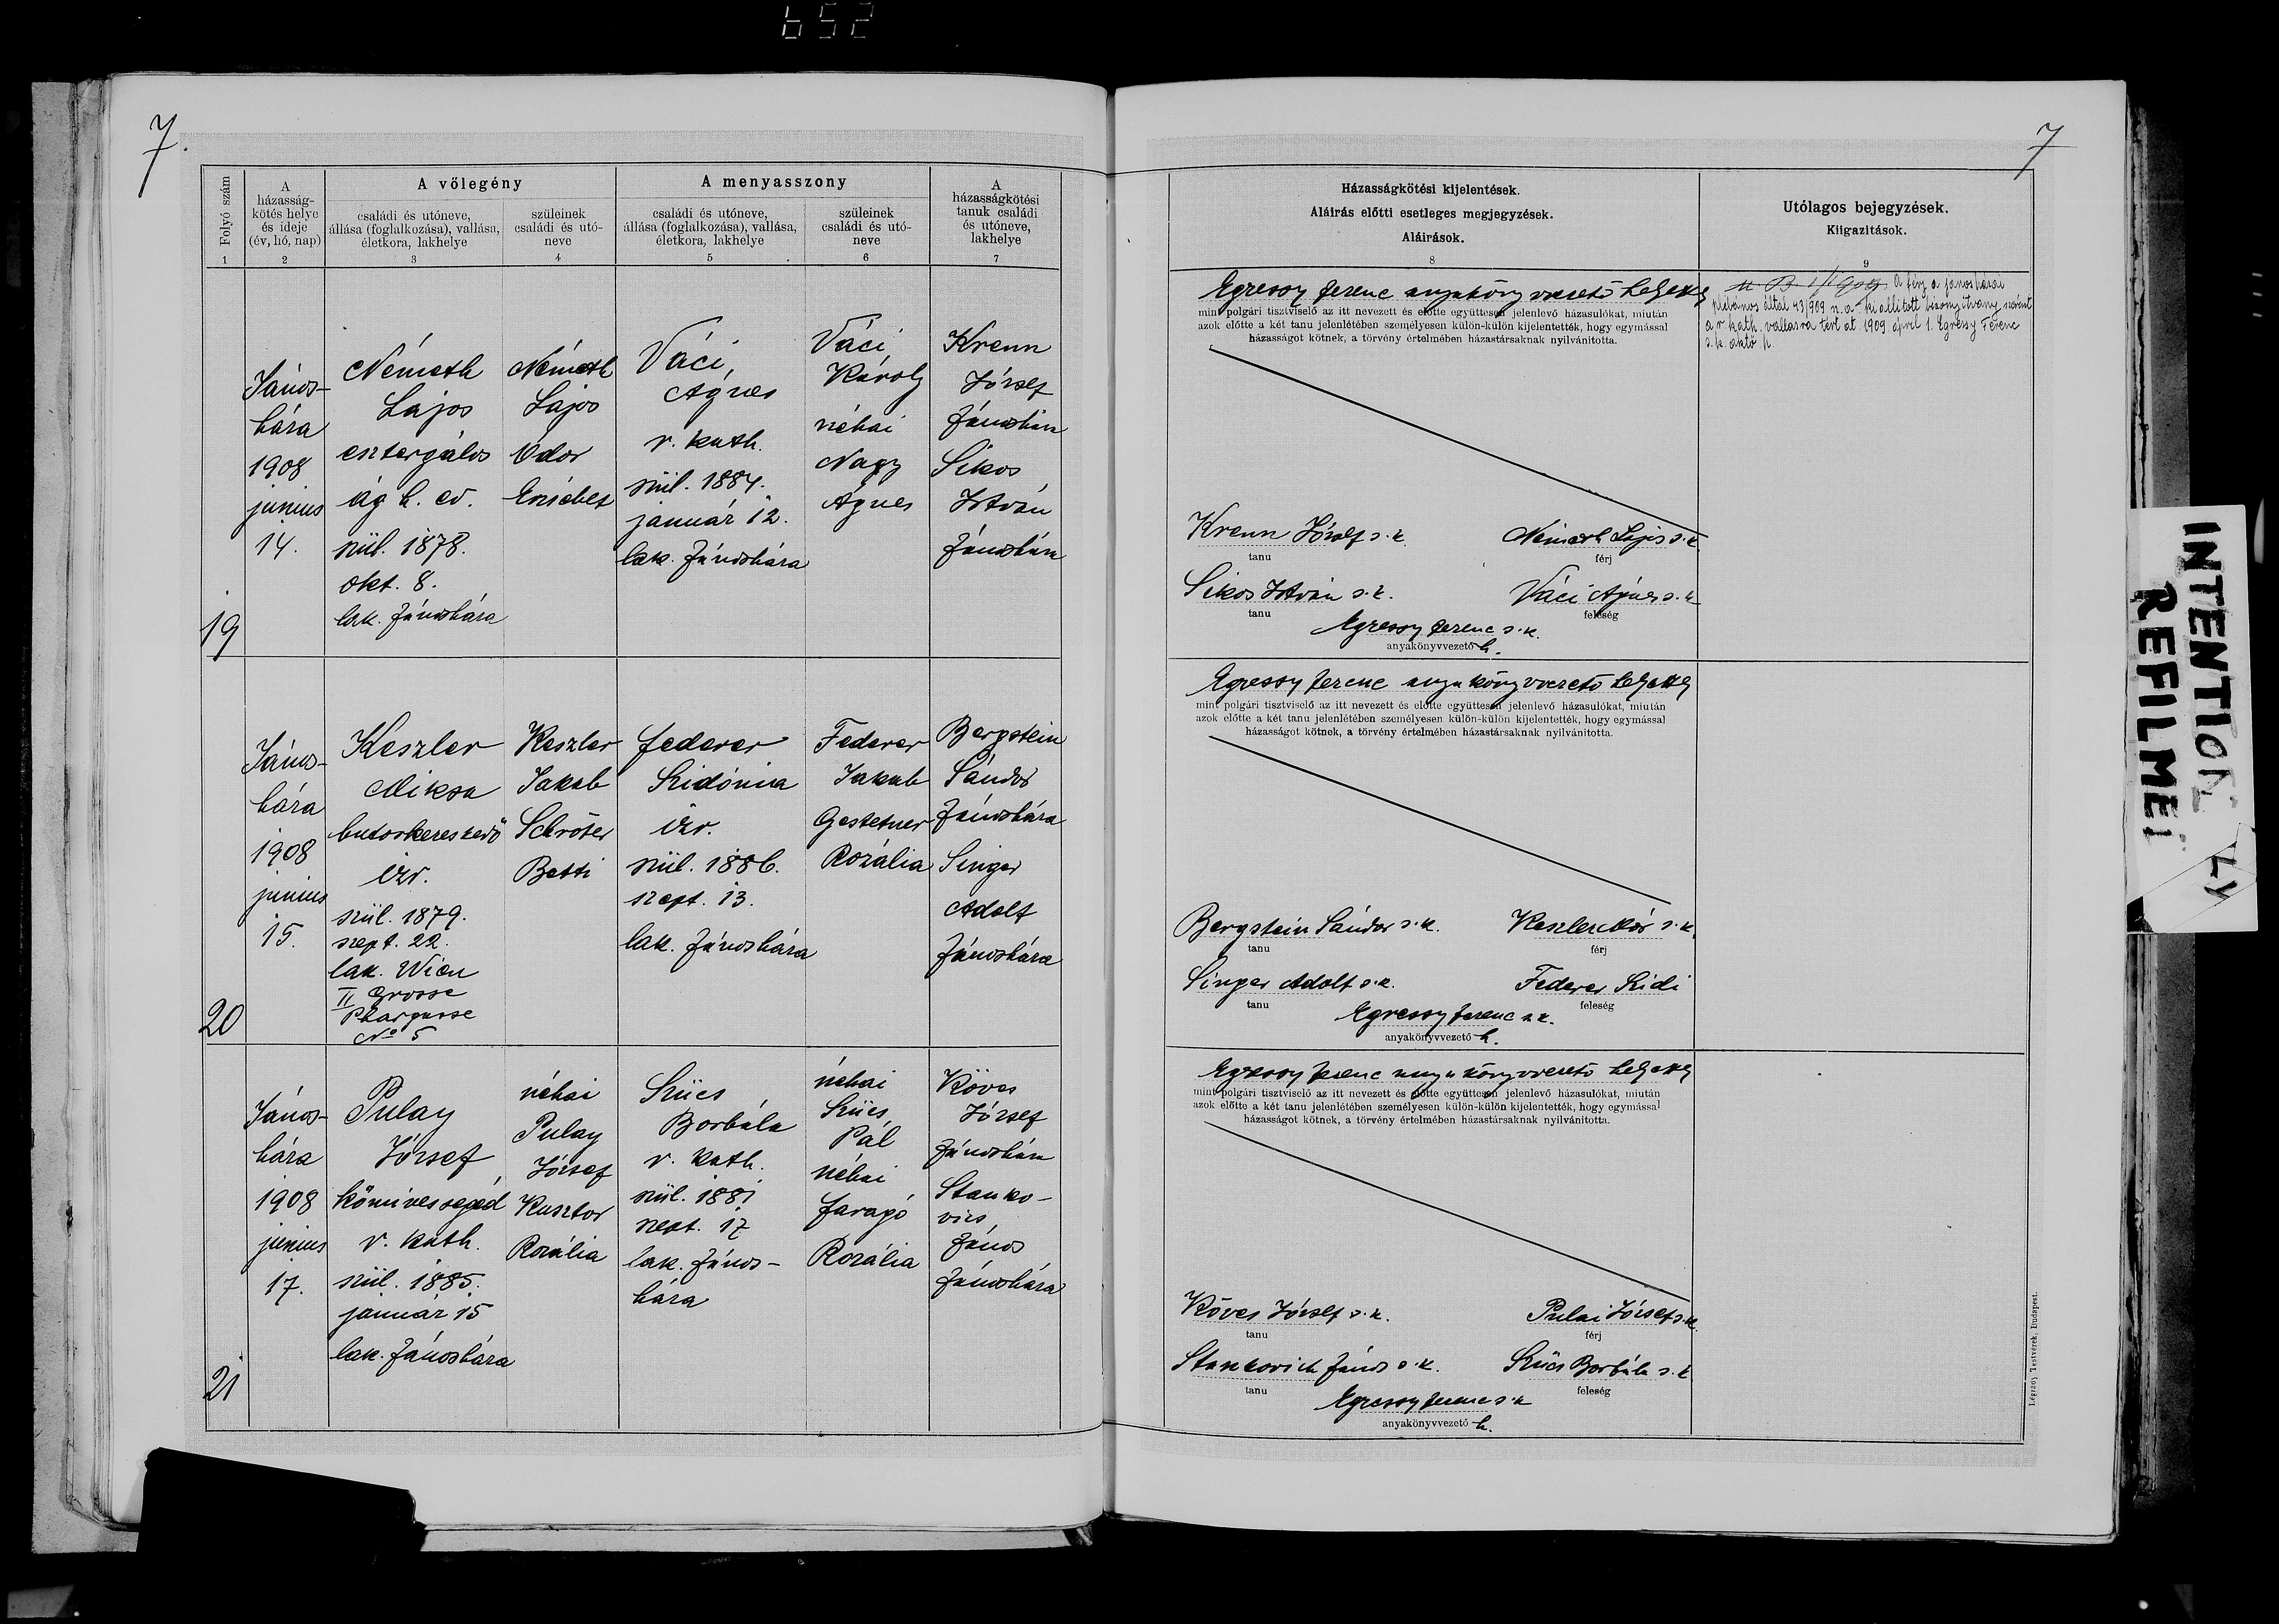 652
7.
7
Folyó szám
A házasság-
kötés helye
és ideje
(év, hó, nap)
A vőlegény
családi és utóneve,
állása (foglalkozása), vallása,
életkora, lakhelye
szüleinek
családi és utó-
neve
A menyasszony
családi és utóneve,
állása (foglalkozása), vallása,
életkora, lakhelye
szüleinek
családi és utó-
neve
A
házasságkötési
tanuk családi
és utóneve,
lakhelye
1 2 3 4 5 6 7
Házasságkötési kijelentések.
Aláírás előtti esetleges megjegyzések.
Aláírások.
8
Utólagos bejegyzések.
Kiigazítások.
9
19
János-
háza
1908
junius
14.
Németh
Lajos
esztergályos
ág h. ev.
szül. 1878.
okt. 8.
lak. Jánosháza
Németh
Lajos
Odor
Erzsébet
Váci
Ágnes
r. kath.
szül. 1884.
január 12.
lak. Jánosháza
Váci
Károly
néhai
Nagy
Ágnes
Krenn
József
Jánosháza
Sikos
István
Jánosháza
Egressy Ferenc anyakönyvvezető helyettes
mint polgári tisztviselő az itt nevezett és előtte együttesen jelenlevő házasulókat, miután
azok előtte a két tanu jelenlétében személyesen külön-külön kijelentették, hogy egymással
házasságot kötnek, a törvény értelmében házastársaknak nyilvánitotta.
Krenn József s. k.
tanu
Németh Lajos s. k.
férj
Sikos István s. k.
tanu
Váci Ágnes s. k.
feleség
Egressy Ferenc s. k.
anyakönyvvezető h.
A férj a jánosházai
plébános által 43/909 n. a. kiállitott bizonyitvány szerint
a r. kath. vallásra tért át. 1909 april 1. Egressy Ferenc
s. k.
20
János-
háza
1908
junius
15.
Keszler
Miksa
butorkereskedő
izr.
szül. 1879.
szept. 22.
lak. Wien
II Grosse
Pfargasse
No 5
Keszler
Jakab
Schröter
Betti
Federer
Szidónia
izr.
szül. 1886.
szept. 13.
lak. Jánosháza
Federer
Jakab
Gestetner
Rozália
Bergstein
Sándor
Jánosháza
Singer
Adolf
Jánosháza
Egressy Ferenc anyakönyvvezető helyettes
mint polgári tisztviselő az itt nevezett és előtte együttesen jelenlevő házasulókat, miután
azok előtte a két tanu jelenlétében személyesen külön-külön kijelentették, hogy egymással
házasságot kötnek, a törvény értelmében házastársaknak nyilvánitotta.
Bergstein Sándor s. k.
tanu
Keszler Mór s. k.
férj
Singer Adolf s. k.
tanu
Federer Szidi
feleség
Egressy Ferenc s. k.
anyakönyvvezető h.
21
János-
háza
1908
junius
17.
Pulay
József
kőmivessegéd
r. kath.
szül. 1885.
január 15
lak. Jánosháza
néhai
Pulay
József
Kusztor
Rozália
Szücs
Borbála
r. kath.
szül. 1881
szept. 17
lak. János-
háza
néhai
Szücs
Pál
néhai
Faragó
Rozália
Köves
József
Jánosháza
Stanko-
vics
János
Jánosháza
Egressy Ferenc anyakönyvvezető helyettes
mint polgári tisztviselő az itt nevezett és előtte együttesen jelenlevő házasulókat, miután
azok előtte a két tanu jelenlétében személyesen külön-külön kijelentették, hogy egymással
házasságot kötnek, a törvény értelmében házastársaknak nyilvánitotta.
Köves József s. k.
tanu
Pulai József s. k.
férj
Stankovich János s. k.
tanu
Szücs Borbála s. k.
feleség
Egressy Ferenc s. k.
anyakönyvvezető h.
Légrády Testvérek, Budapest.
INTENTIONALLY
REFILMED